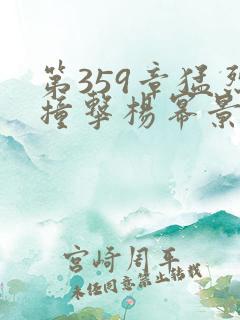 第359章猛烈
撞擊楊冪景
宮崎周平
未经同意禁止转载